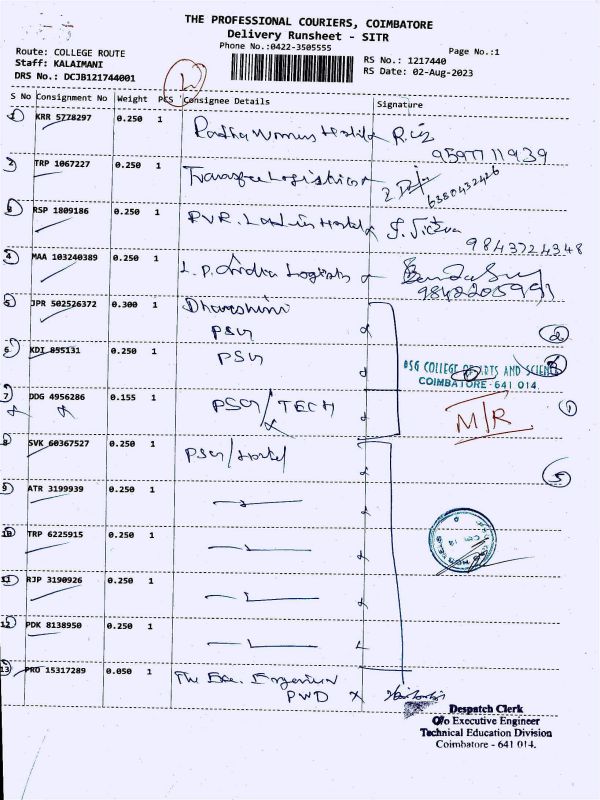 THE PROFESSIONAL COURIERS, COIMBATORE
Delivery Runsheet - SITR
Phone No.:0422-3505555
Page No.:1
Route: COLLEGE ROUTE
Staff: KALAIMANI
DRS No.: DCJB121744001
RS No.: 1217440
RS Date: 02-Aug-2023
S No Consignment No Weight PCS Consignee Details Signature
1 KRR 5778297 0.250 1
9597711939
2 TRP 1067227 0.250 1
6380432426
3 RSP 1809186 0.250 1 P.V.R. Ladies Hostel
9843724348
4 MAA 103240389 0.250 1
9842205991
5 JPR 502526372 0.300 1 Dharshini
PSG
2
6 KDI 855131 0.250 1 PSG
PSG COLLEGE OF ARTS AND SCIENCE
COIMBATORE - 641 014.
7 DDG 4956286 0.155 1 PSG/TECH
M/R
1
8 SVK 60367527 0.250 1 PSG/Hostel
5
9 ATR 3199939 0.250 1
10 TRP 6225915 0.250 1
11 RJP 3190926 0.250 1
12 PDK 8138950 0.250 1
13 PRO 15317289 0.050 1 The Exe. Engineer
PWD
Despatch Clerk
O/o Executive Engineer
Technical Education Division
Coimbatore - 641 014.